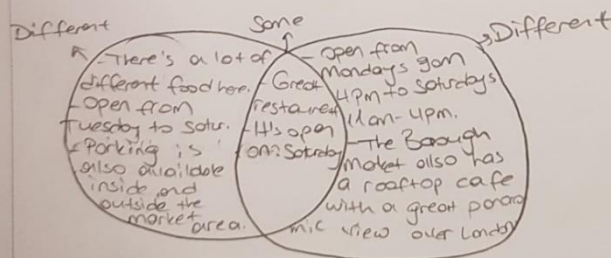 Different
Same
Different
- There's a lot of
different food here.
- Open from
Tuesday to Satur.
- Parking is
also available
inside and
outside the
market area.
- Great
restaured
- It's open
on: Saturday
- Open from
Mondays 9am
4pm to Saturdays
11an-4pm.
- The Borough
market also has
a rooftop cafe
with a great panora
mic view over London